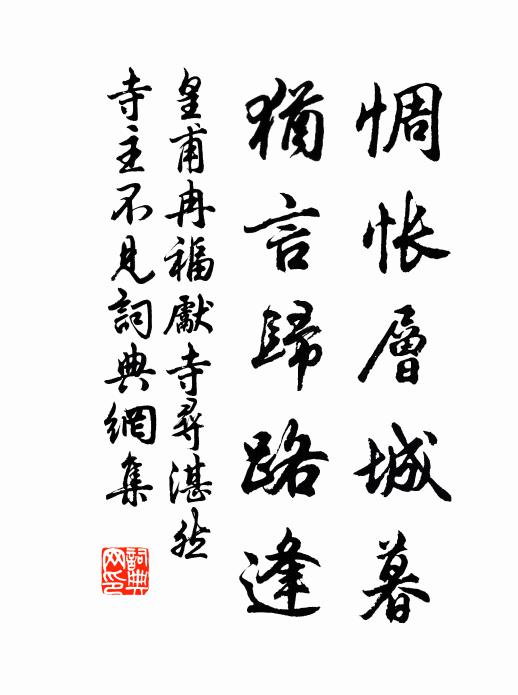 惆悵層城暮
猶言歸路逢
皇甫冉福獻寺尋湛然
寺主不見詞典網集
詞典
网印